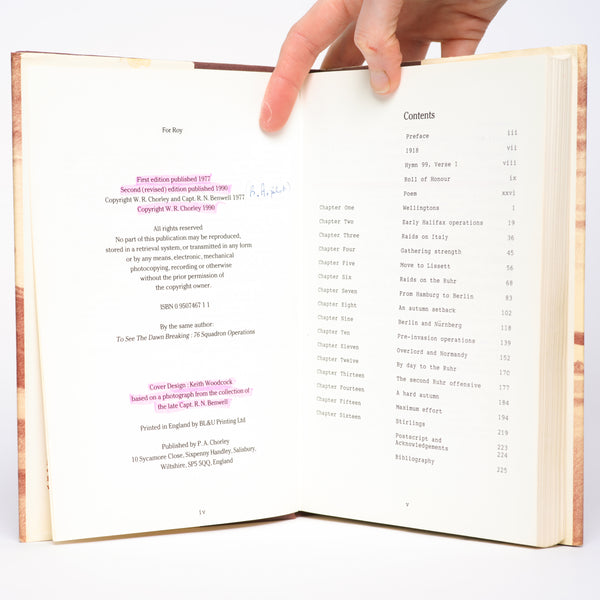 For Roy
First edition published 1977
Second (revised) edition published 1990
Copyright W. R. Chorley and Capt. R. N. Benwell 1977
Copyright W. R. Chorley 1990
All rights reserved
No part of this publication may be reproduced,
stored in a retrieval system, or transmitted in any form
or by any means, electronic, mechanical
photocopying, recording or otherwise
without the prior permission of
the copyright owner.
ISBN 0 9507467 1 1
By the same author:
To See The Dawn Breaking : 76 Squadron Operations
Cover Design : Keith Woodcock
based on a photograph from the collection of
the late Capt. R. N. Benwell
Printed in England by BL&U Printing Ltd
Published by P. A. Chorley
10 Sycamore Close, Sixpenny Handley, Salisbury,
Wiltshire, SP5 5QQ, England
iv
Contents
Preface iii
1918 vii
Hymn 99. Verse 1 viii
Roll of Honour ix
Poem xxvi
Chapter One Wellingtons 1
Chapter Two Early Halifax operations 19
Chapter Three Raids on Italy 36
Chapter Four Gathering strength 45
Chapter Five Move to Lissett 56
Chapter Six Raids on the Ruhr 68
Chapter Seven From Hamburg to Berlin 83
Chapter Eight An autumn setback 102
Chapter Nine Berlin and Nürnberg 118
Chapter Ten Pre-invasion operations
Chapter Eleven Overlord and Normandy 152
Chapter Twelve By day to the Ruhr
Chapter Thirteen The second Ruhr offensive 177
Chapter Fourteen A hard autumn 194
Chapter Fifteen Maximum effort
Chapter Sixteen Stirlings 219
Postscript and 223
Acknowledgements 224
Bibliography 225
v